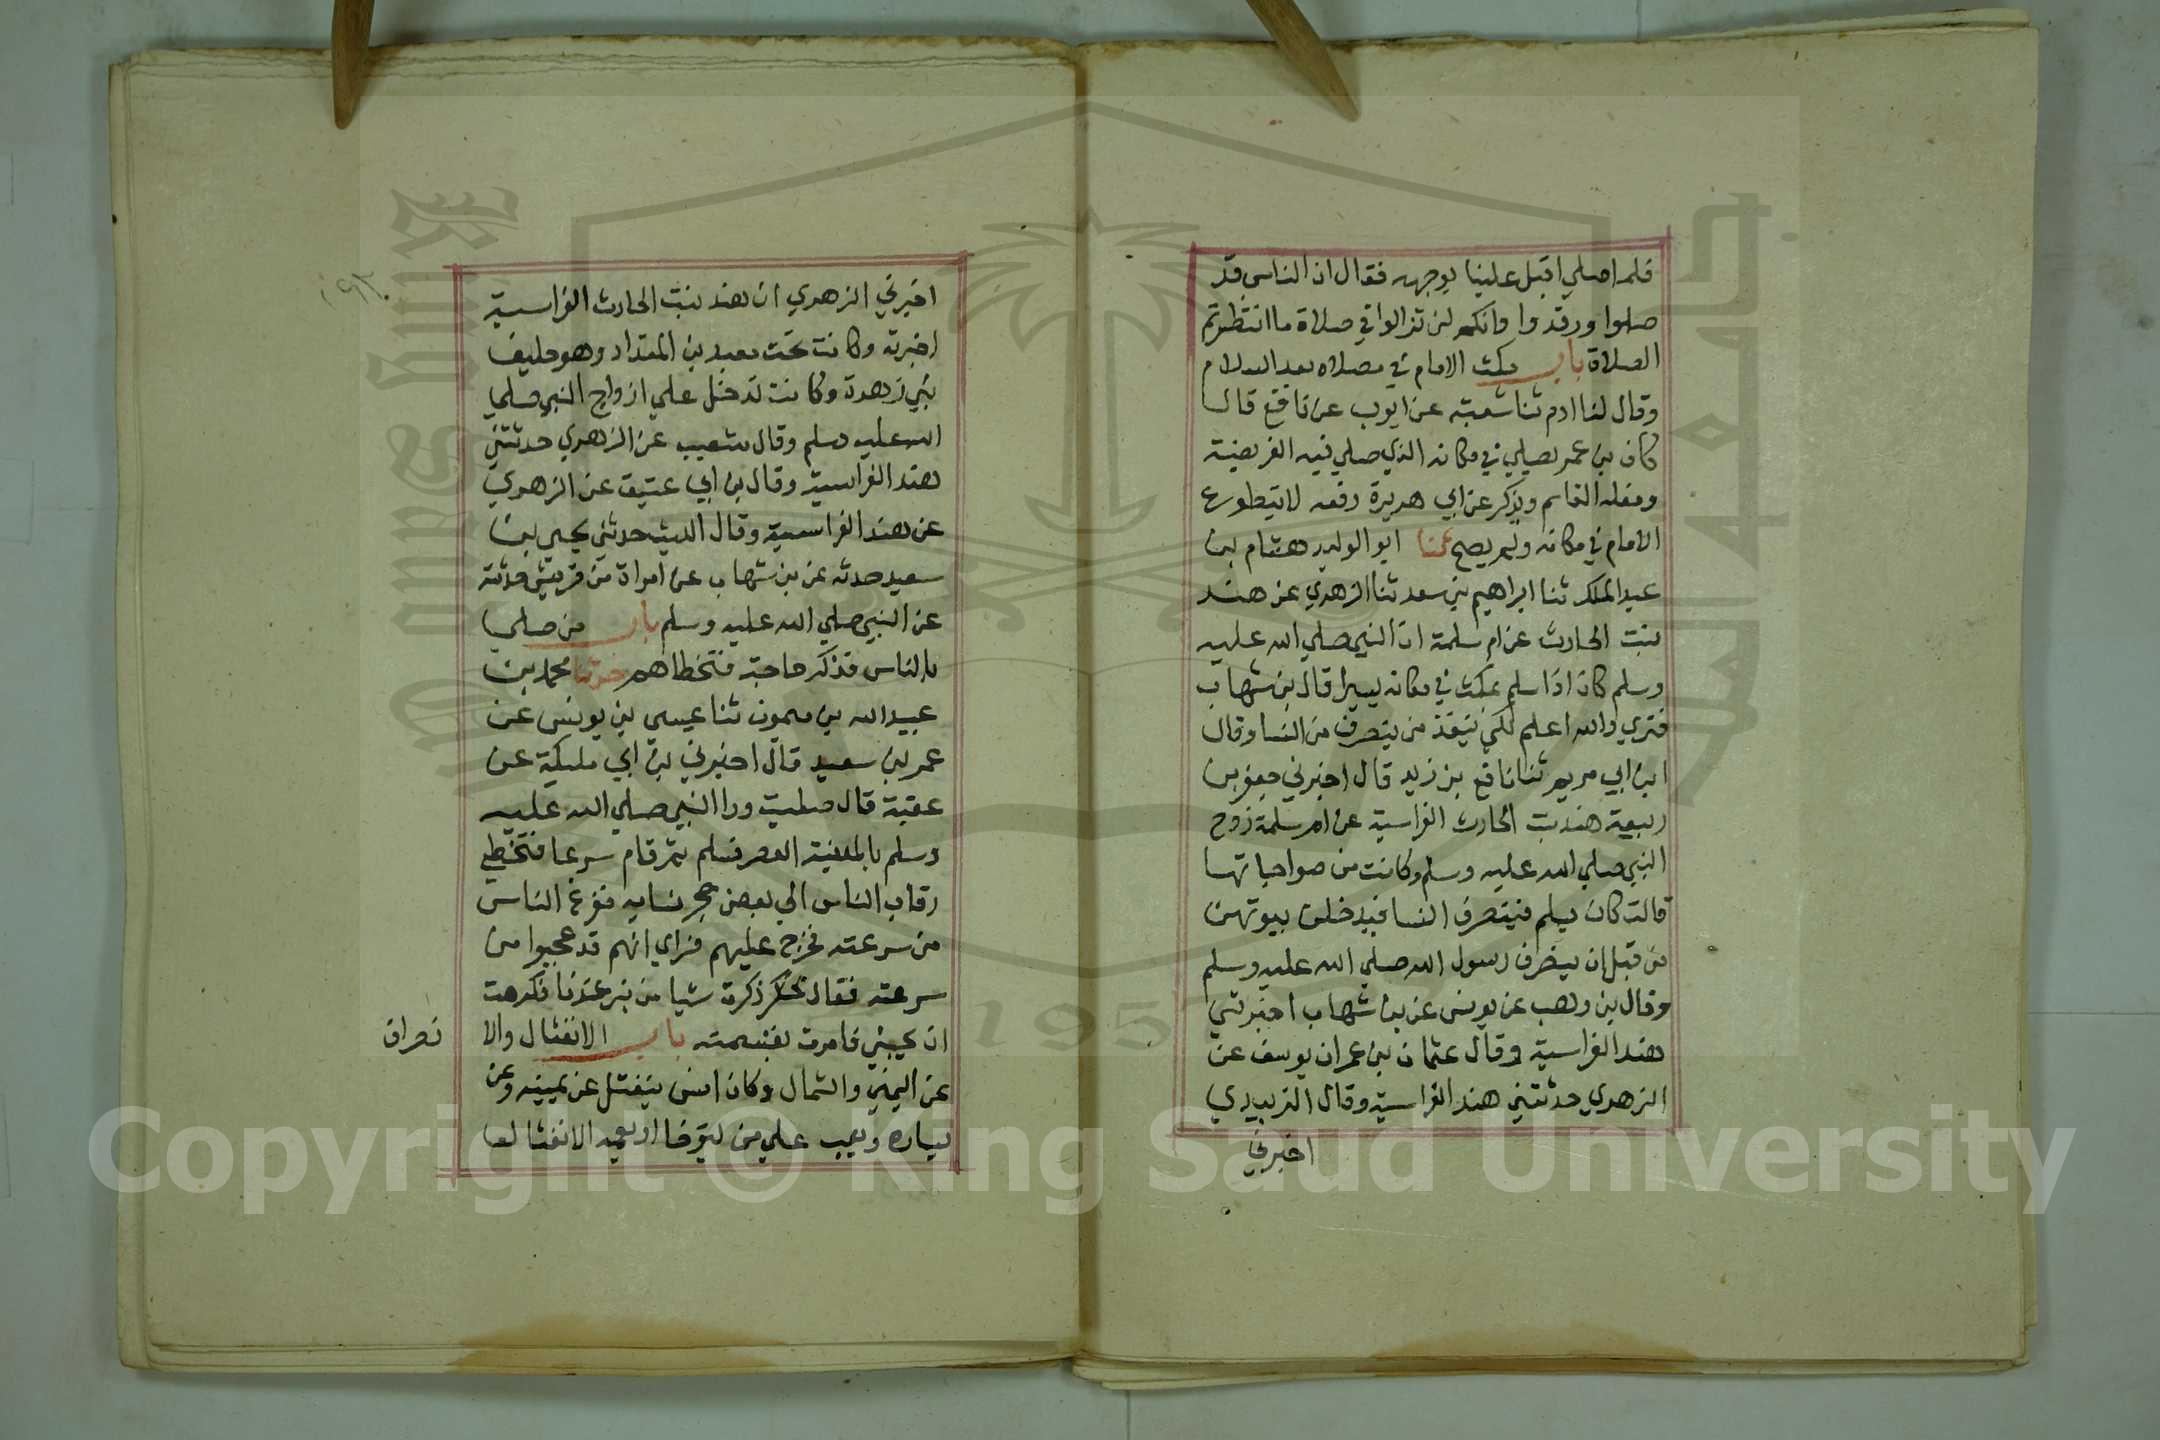 فلما صلي اقبل علينا بوجهه فقال ان الناس قد
صلوا ورقدوا وانكم لن تزالوا في صلاة ما انتظرتم
الصلاة باب مكث الامام في مصلاه بعد السلام
وقال لنا ادم ثنا شعبة عن ايوب عن نافع قال
كان بن عمر يصلي في مكانه الذي صلي فيه الفريضة
وفعله القاسم ويذكر عن ابي هريرة رفعه لا يتطوع
الامام في مكانه ولم يصح ابو الوليد هشام بن
عبد الملك ثنا ابراهيم بن سعد ثنا الزهري عن هند
بنت الحارث عن ام سلمة ان النبي صلي الله عليه
وسلم كان اذا سلم يمكث في مكانه يسيرا قال بن شهاب
فنري والله اعلم لكي ينفذ من ينصرف من النسا وقال
ابن ابي مريم ثنا نافع بن زيد قال اخبرني جعفر بن
ربيعة هند بنت الحارث الفراسية عن ام سلمة زوج
النبي صلي الله عليه وسلم وكانت من صواحباتها
قالت كان يسلم فينصرف النسا فيدخلن بيوتهن
من قبل ان ينصرف رسول الله صلي الله عليه وسلم
وقال بن وهب عن يونس عن بن شهاب اخبرتني
هند الفراسية وقال عثمان بن عمر ان يوسف عن
الزهري حدثتني هند الفراسية وقال الزبيدي
اخبرني
اخبرني الزهري ان هند بنت الحارث الفراسية
اخبرته وكانت تحت معبد بن المقداد وهو حليف
بني زهرة وكانت تدخل علي ازواج النبي صلي
الله عليه وسلم وقال شعيب عن الزهري حدثتني
هند الفراسية وقال بن ابي عتيق عن الزهري
عن هند الفراسية وقال الليث حدثني يحيي بن
سعيد حدثه عن بن شهاب عن امراة من قريش حدثته
عن النبي صلي الله عليه وسلم باب من صلي
بالناس فذكر حاجة فتخطاهم حدثنا محمد بن
عبيد الله بن ميمون ثنا عيسي بن يونس عن
عمر بن سعيد قال اخبرني بن ابي مليكة عن
عقبة قال صليت ورا النبي صلي الله عليه
وسلم بالمدينة العصر فسلم ثم قام سرعا فتخطي
رقاب الناس الي بعض حجر نسايه ففزع الناس
من سرعته فخرج عليهم فراي انهم قد عجبوا من
سرعته فقال ذكرة شيا من تبر عندنا فكرهت
ان يحبسني فامرت بقسمته باب الانفتال والا
نصراف
عن اليمين والشمال وكان انس ينفتل عن يمينه وعن
يساره ويعيب علي من يتوخا او يعمد الانفتال عن
Copyright © King Saud University
1957